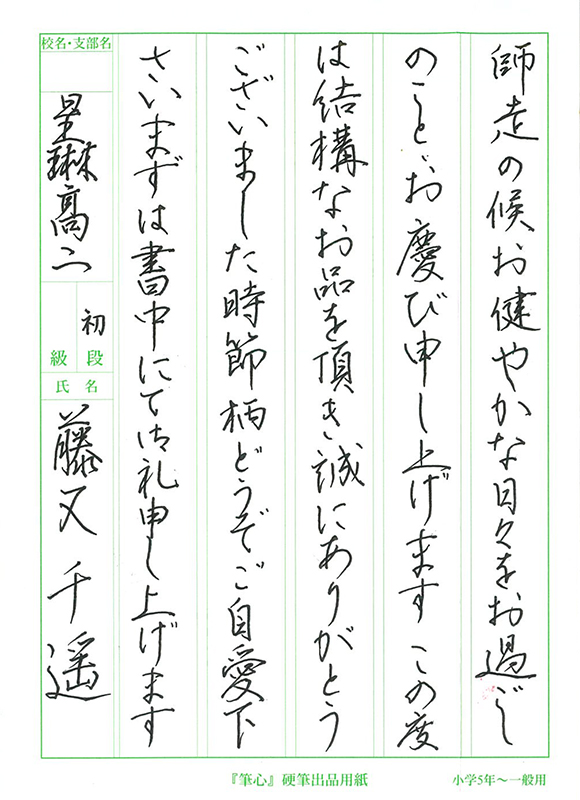 師走の候お健やかな日々をお過ごし
のことゝお慶び申し上げます この度
は結構なお品を頂き誠にありがとう
ございました時節柄どうぞご自愛下
さいまずは書中にて御礼申し上げます
校名・支部名
星琳高二
初
段
級
氏名
藤又千遥
『筆心』硬筆出品用紙
小学5年〜一般用